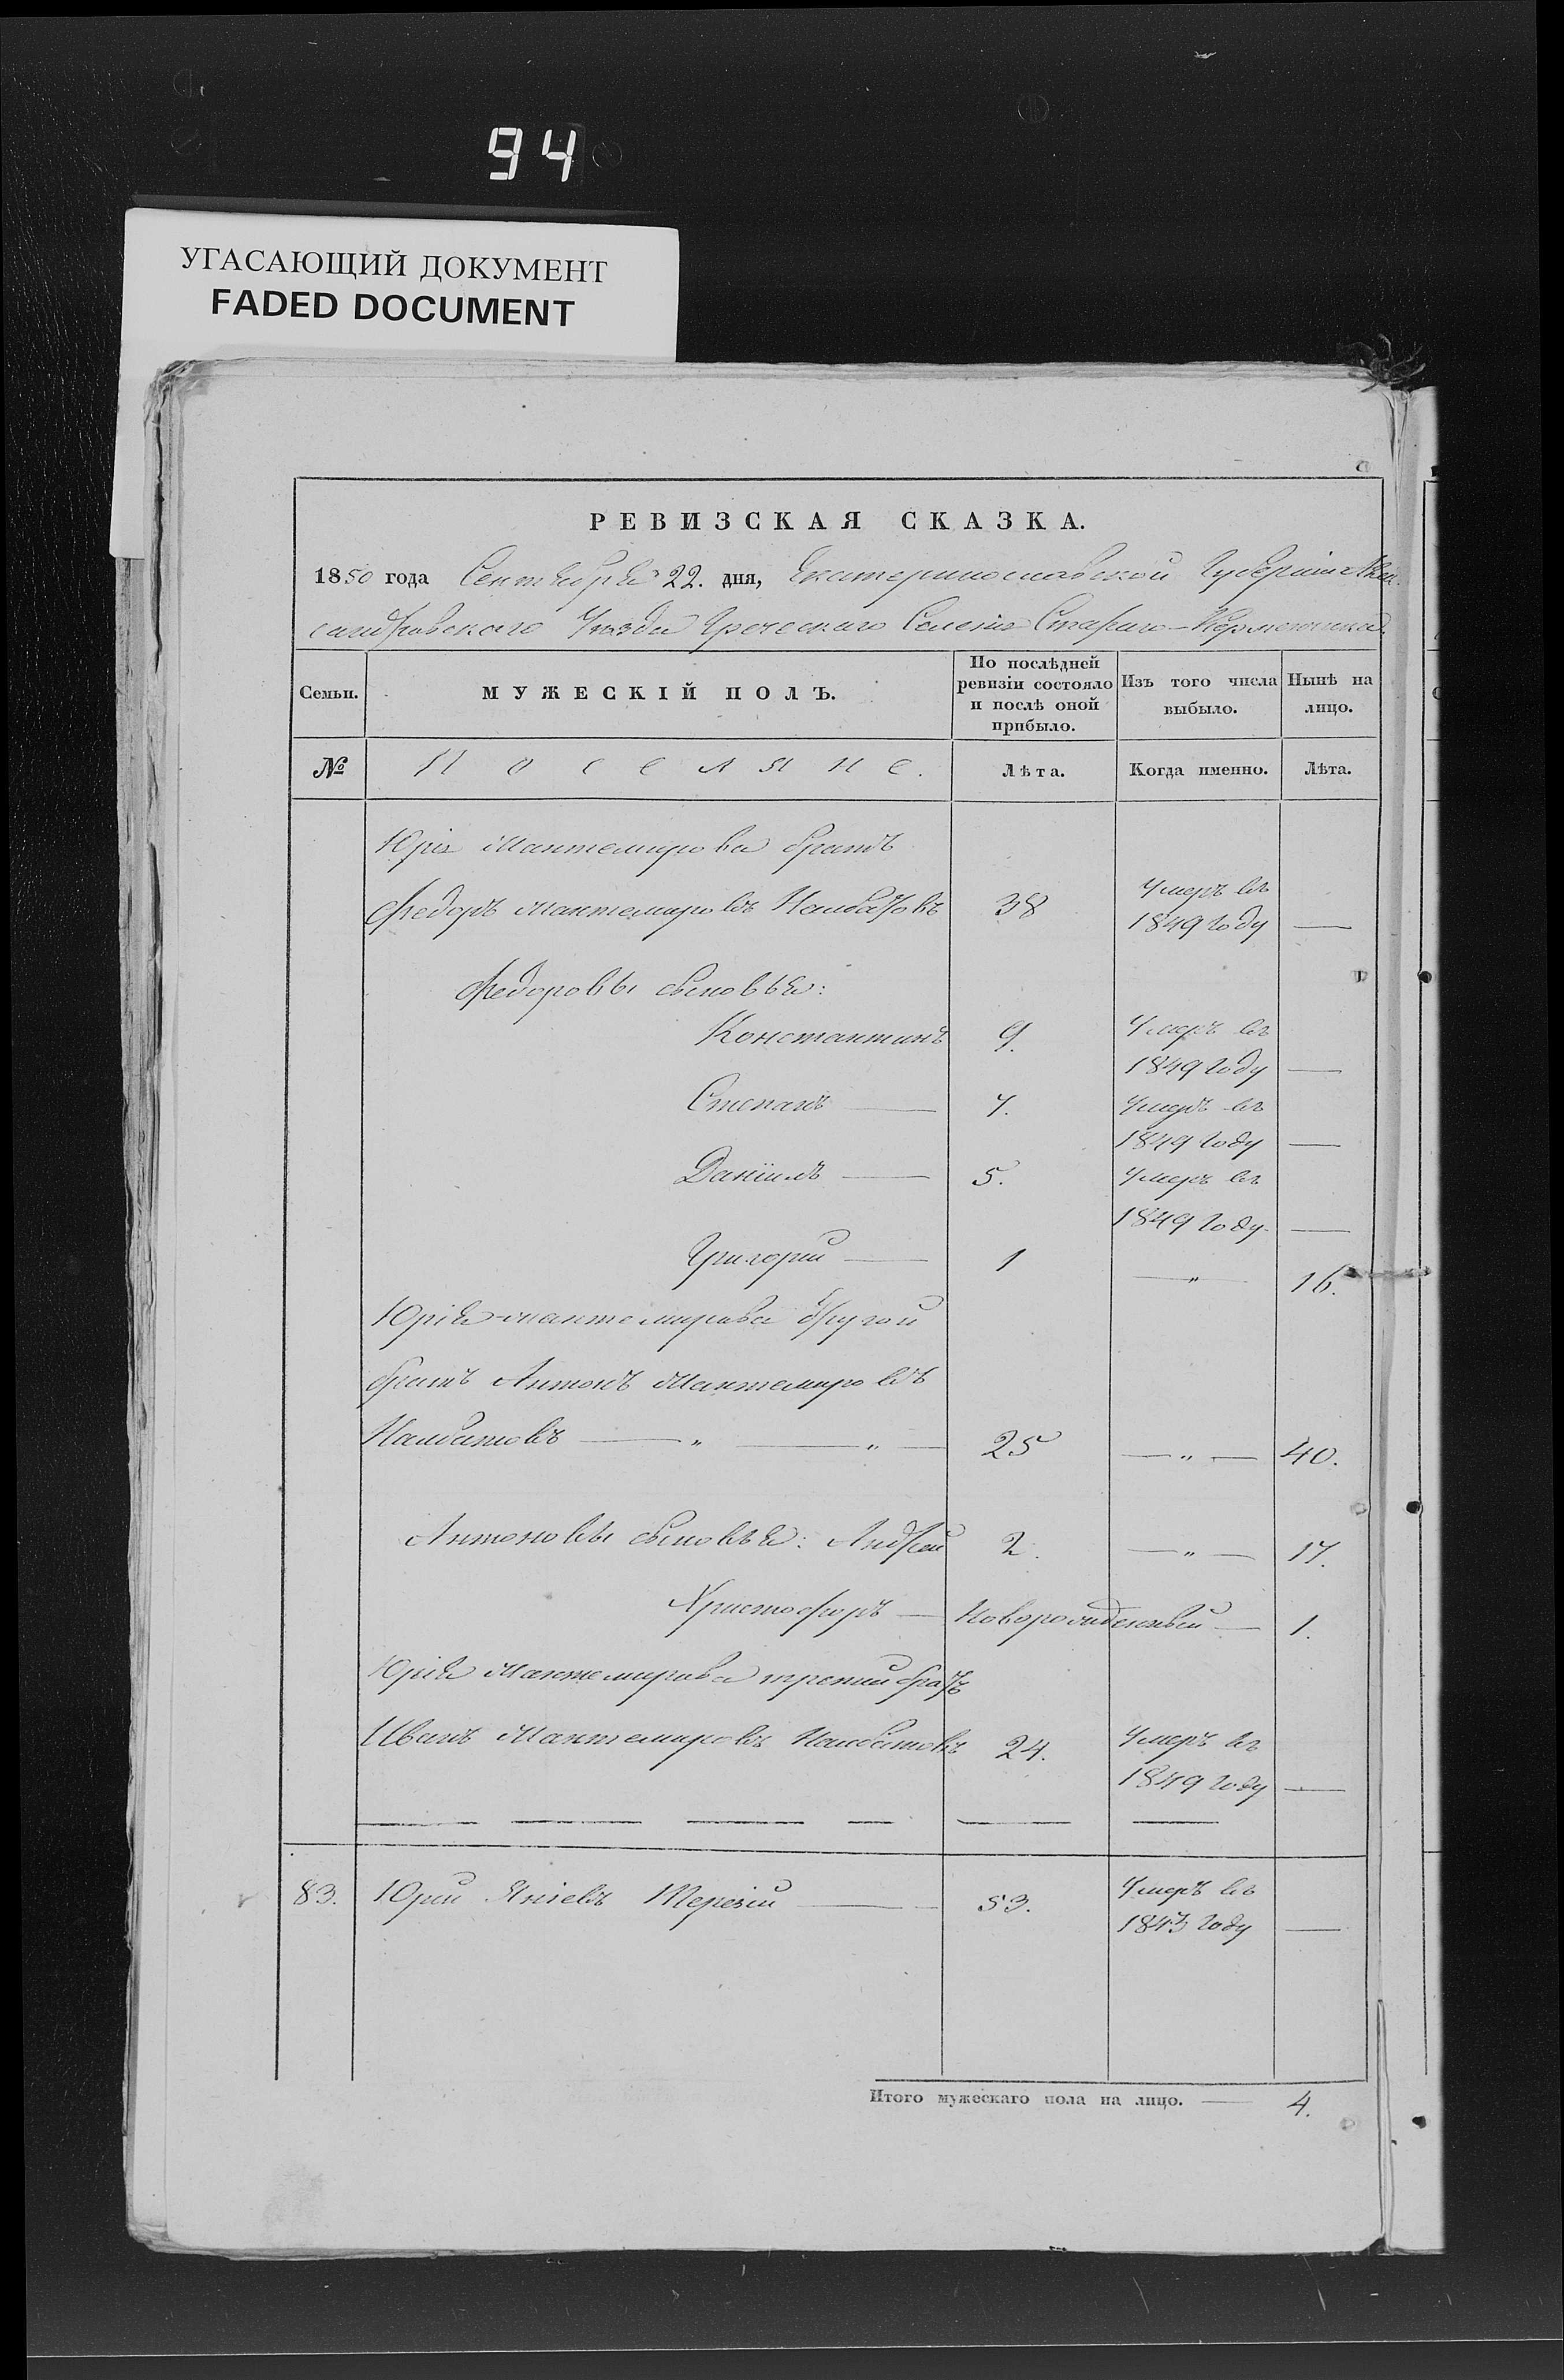 94
УГАСАЮЩИЙ ДОКУМЕНТ
FADED DOCUMENT
РЕВИЗСКАЯ СКАЗКА.
1850 года Сентября 22. дня, Екатеринославской Губерніи Алек-
сандровскаго Уѣзда Греческаго Селенія Стараго-Керменчика.
Семьи. МУЖЕСКІЙ ПОЛЪ. По послѣдней ревизіи состояло и послѣ оной прибыло. Изъ того числа выбыло. Нынѣ на лицо.
№ Поселяне. Лѣта. Когда именно. Лѣта.
Юрія Мантемирова братъ
Федоръ Мантемировъ Налбатовъ 38 Умеръ въ
1849 году —
Федоровы сыновья:
Константинъ 9. Умеръ въ
1849 году —
Степанъ — 7. Умеръ въ
1849 году —
Даніилъ — 5. Умеръ въ
1849 году —
Григорій — 1 — „ — 16.
Юрія Мантемирова другой
братъ Антонъ Мантемировъ
Налбатовъ — „ — „ — 25 — „ — 40.
Антоновы сыновья: Андрей 2. — „ — 17.
Христофоръ — Новорожденный — 1.
Юрія Мантемирова третій братъ
Иванъ Мантемировъ Налбатовъ 24. Умеръ въ
1849 году —
83. Юрій Яніевъ Терезій — 53. Умеръ въ
1843 году —
Итого мужескаго пола на лицо. — 4.